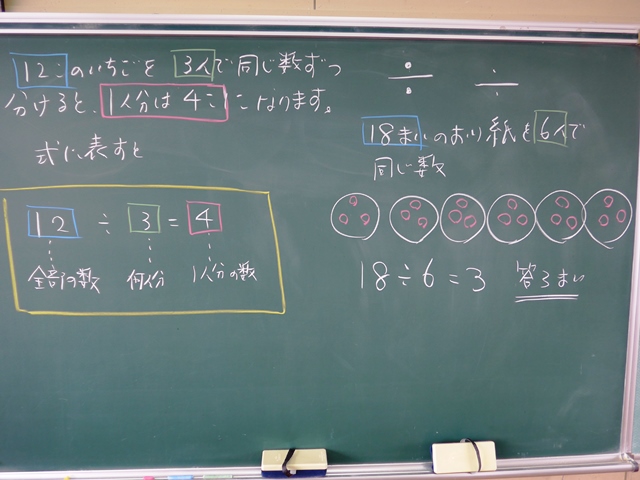 12このいちごを3人で同じ数ずつ
分けると、1人分は4こになります。
式に表すと
12 ÷ 3 = 4
全部の数 何人分 1人分の数
÷ ÷
18まいのおり紙を6人で
同じ数
18÷6=3 答え3まい